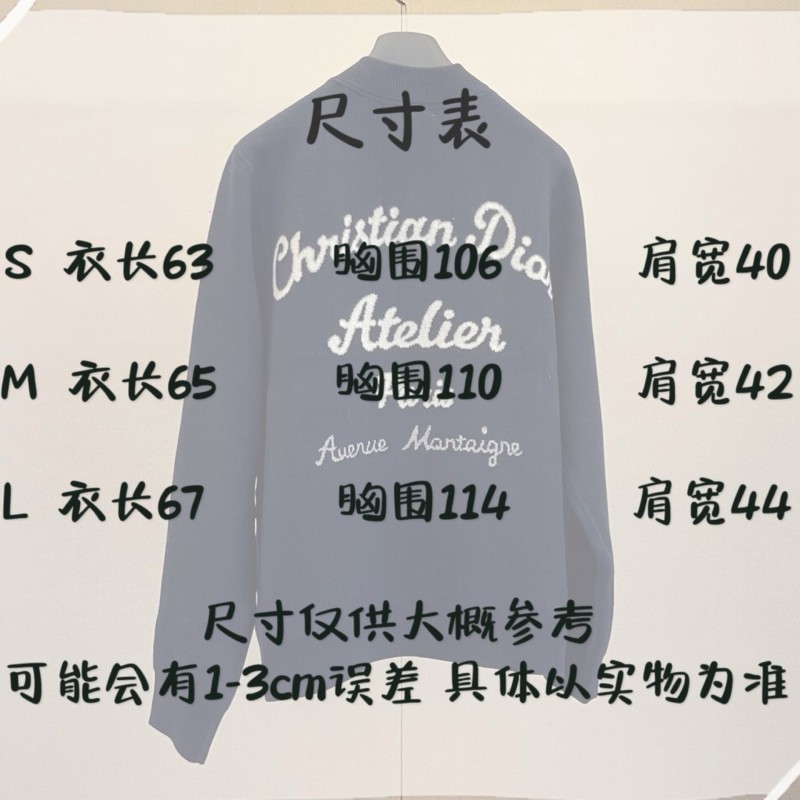 尺寸表
Christian Dior
S 衣长63 胸围106 肩宽40
Atelier
M 衣长65 胸围110 肩宽42
Paris
Avenue Montaigne
L 衣长67 胸围114 肩宽44
尺寸仅供大概参考
可能会有1-3cm误差 具体以实物为准